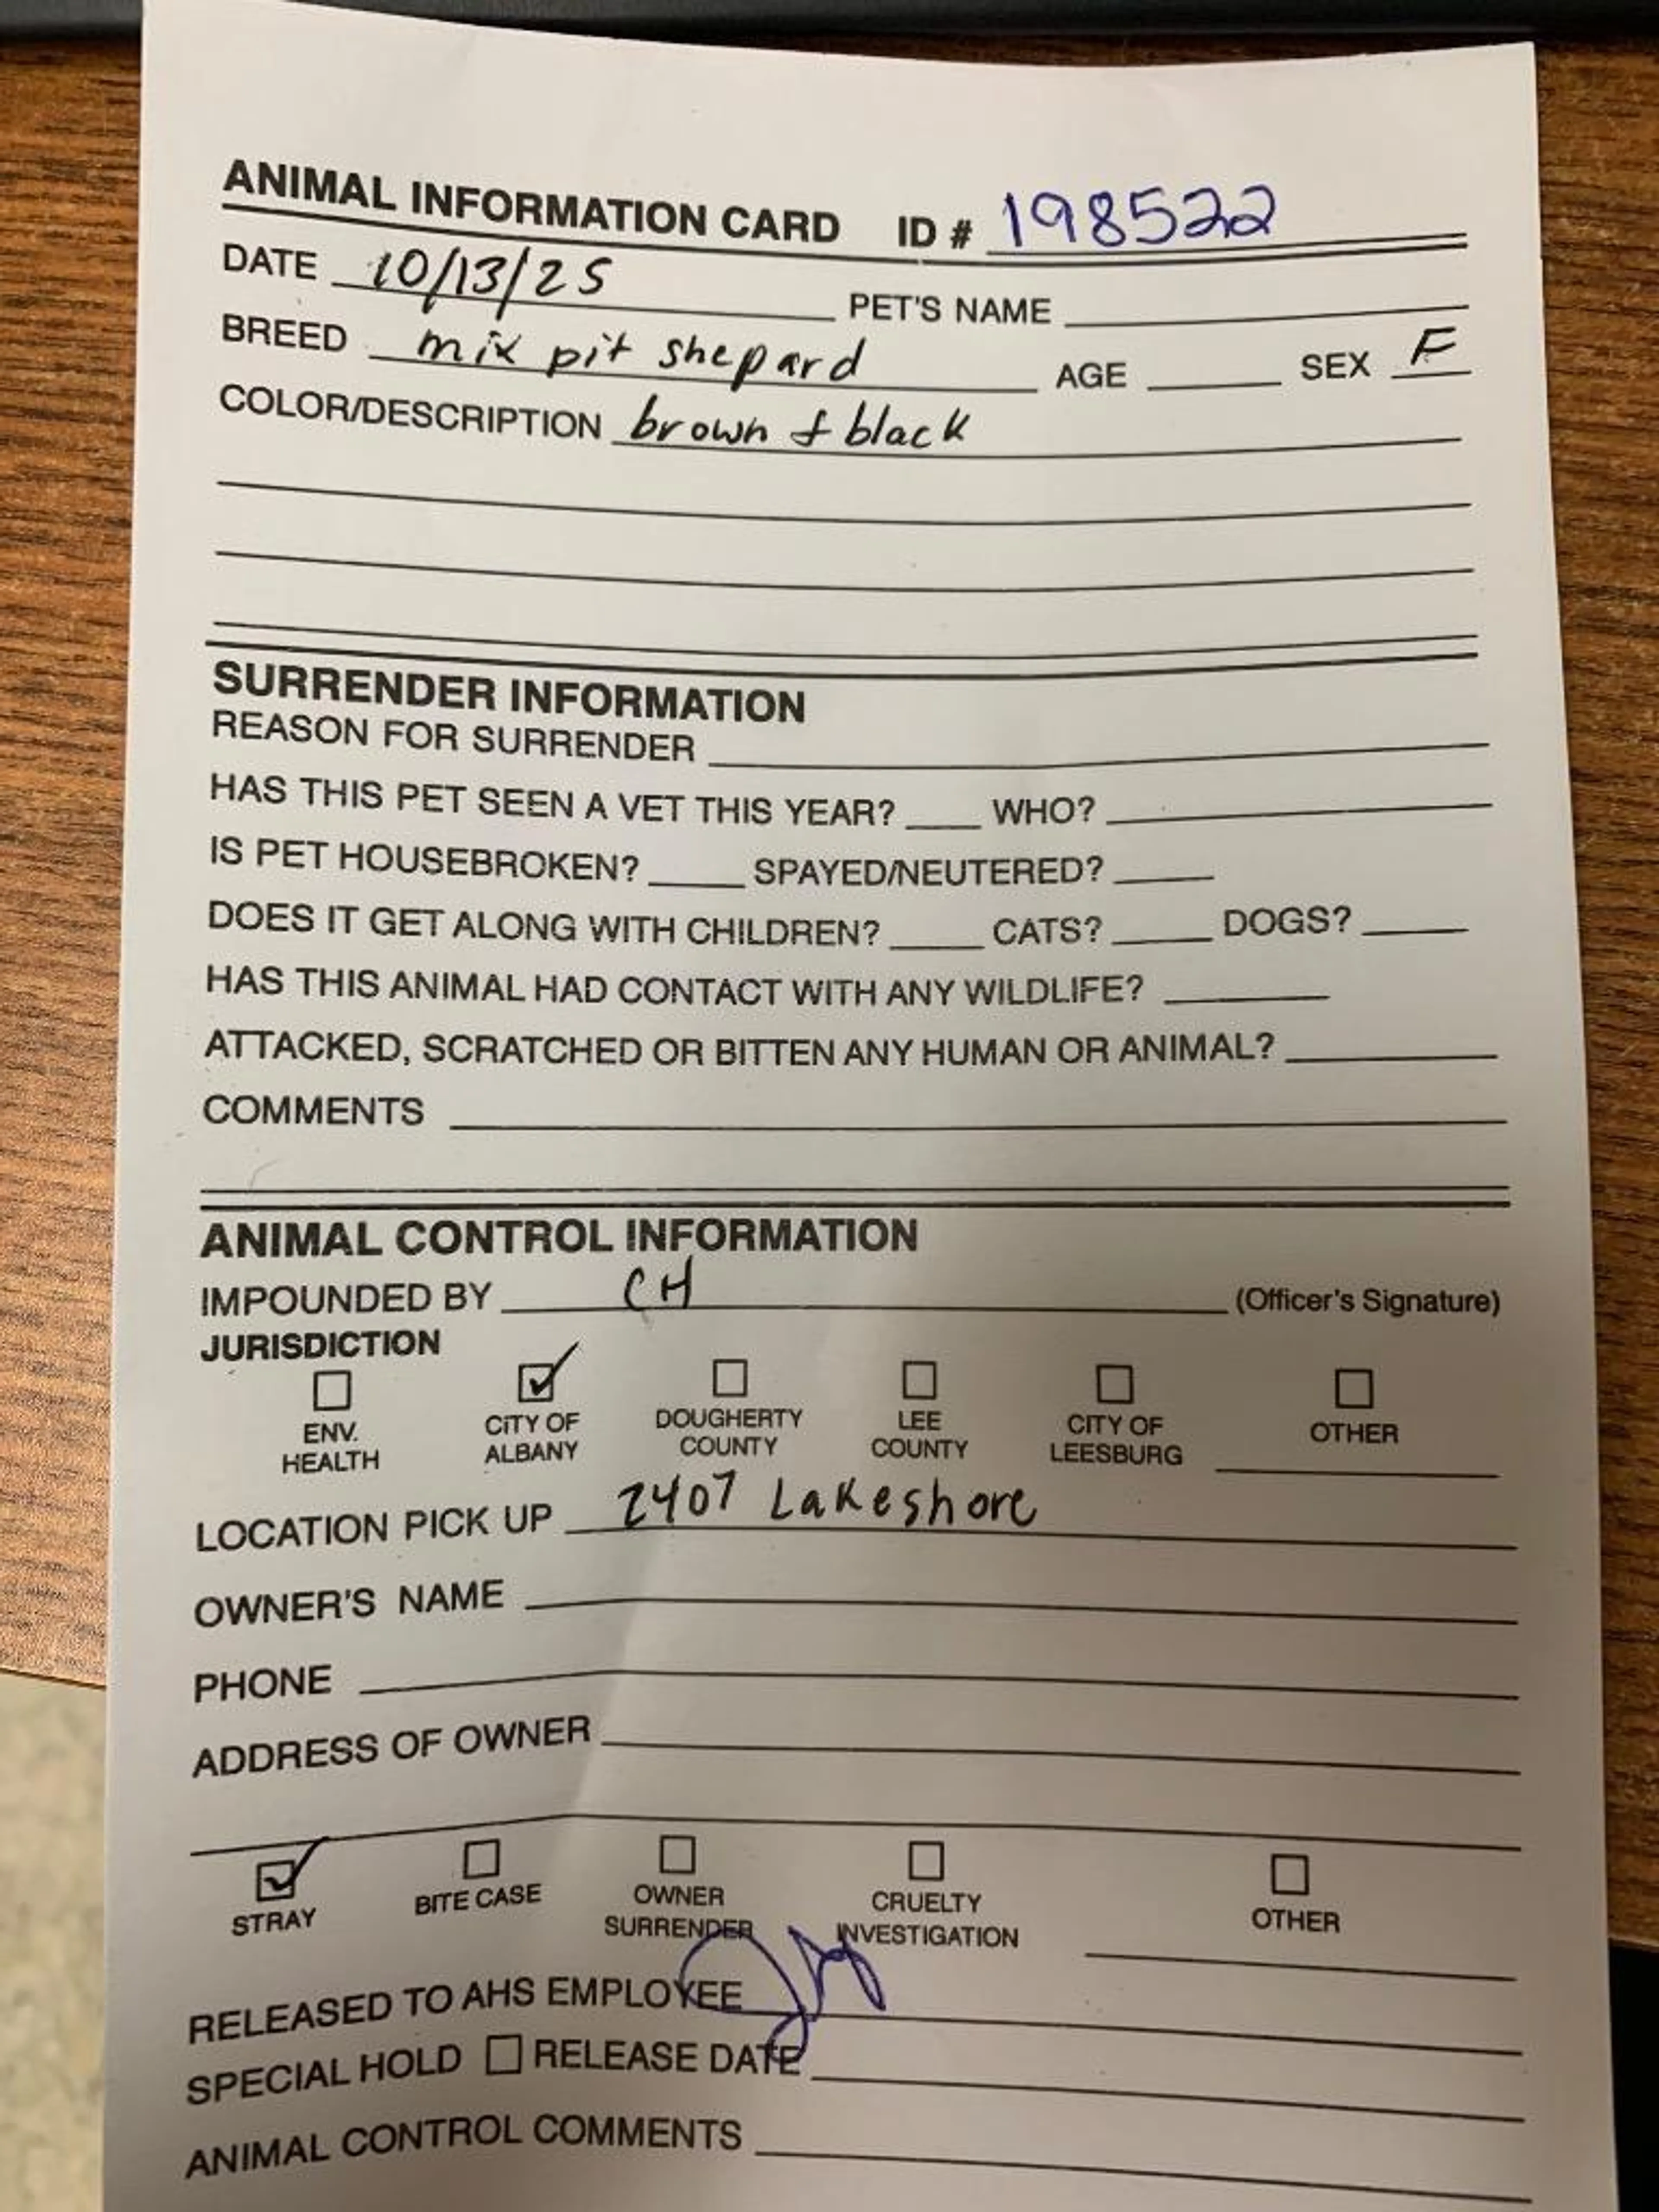 ANIMAL INFORMATION CARD ID # 198522
DATE 10/13/25 PET'S NAME
BREED mix pit shepard AGE SEX F
COLOR/DESCRIPTION brown & black
SURRENDER INFORMATION
REASON FOR SURRENDER
HAS THIS PET SEEN A VET THIS YEAR? WHO?
IS PET HOUSEBROKEN? SPAYED/NEUTERED?
DOES IT GET ALONG WITH CHILDREN? CATS? DOGS?
HAS THIS ANIMAL HAD CONTACT WITH ANY WILDLIFE?
ATTACKED, SCRATCHED OR BITTEN ANY HUMAN OR ANIMAL?
COMMENTS
ANIMAL CONTROL INFORMATION
IMPOUNDED BY CH (Officer's Signature)
JURISDICTION
ENV. HEALTH CITY OF ALBANY DOUGHERTY COUNTY LEE COUNTY CITY OF LEESBURG OTHER
LOCATION PICK UP 2407 Lakeshore
OWNER'S NAME
PHONE
ADDRESS OF OWNER
STRAY BITE CASE OWNER SURRENDER CRUELTY INVESTIGATION OTHER
RELEASED TO AHS EMPLOYEE
SPECIAL HOLD RELEASE DATE
ANIMAL CONTROL COMMENTS